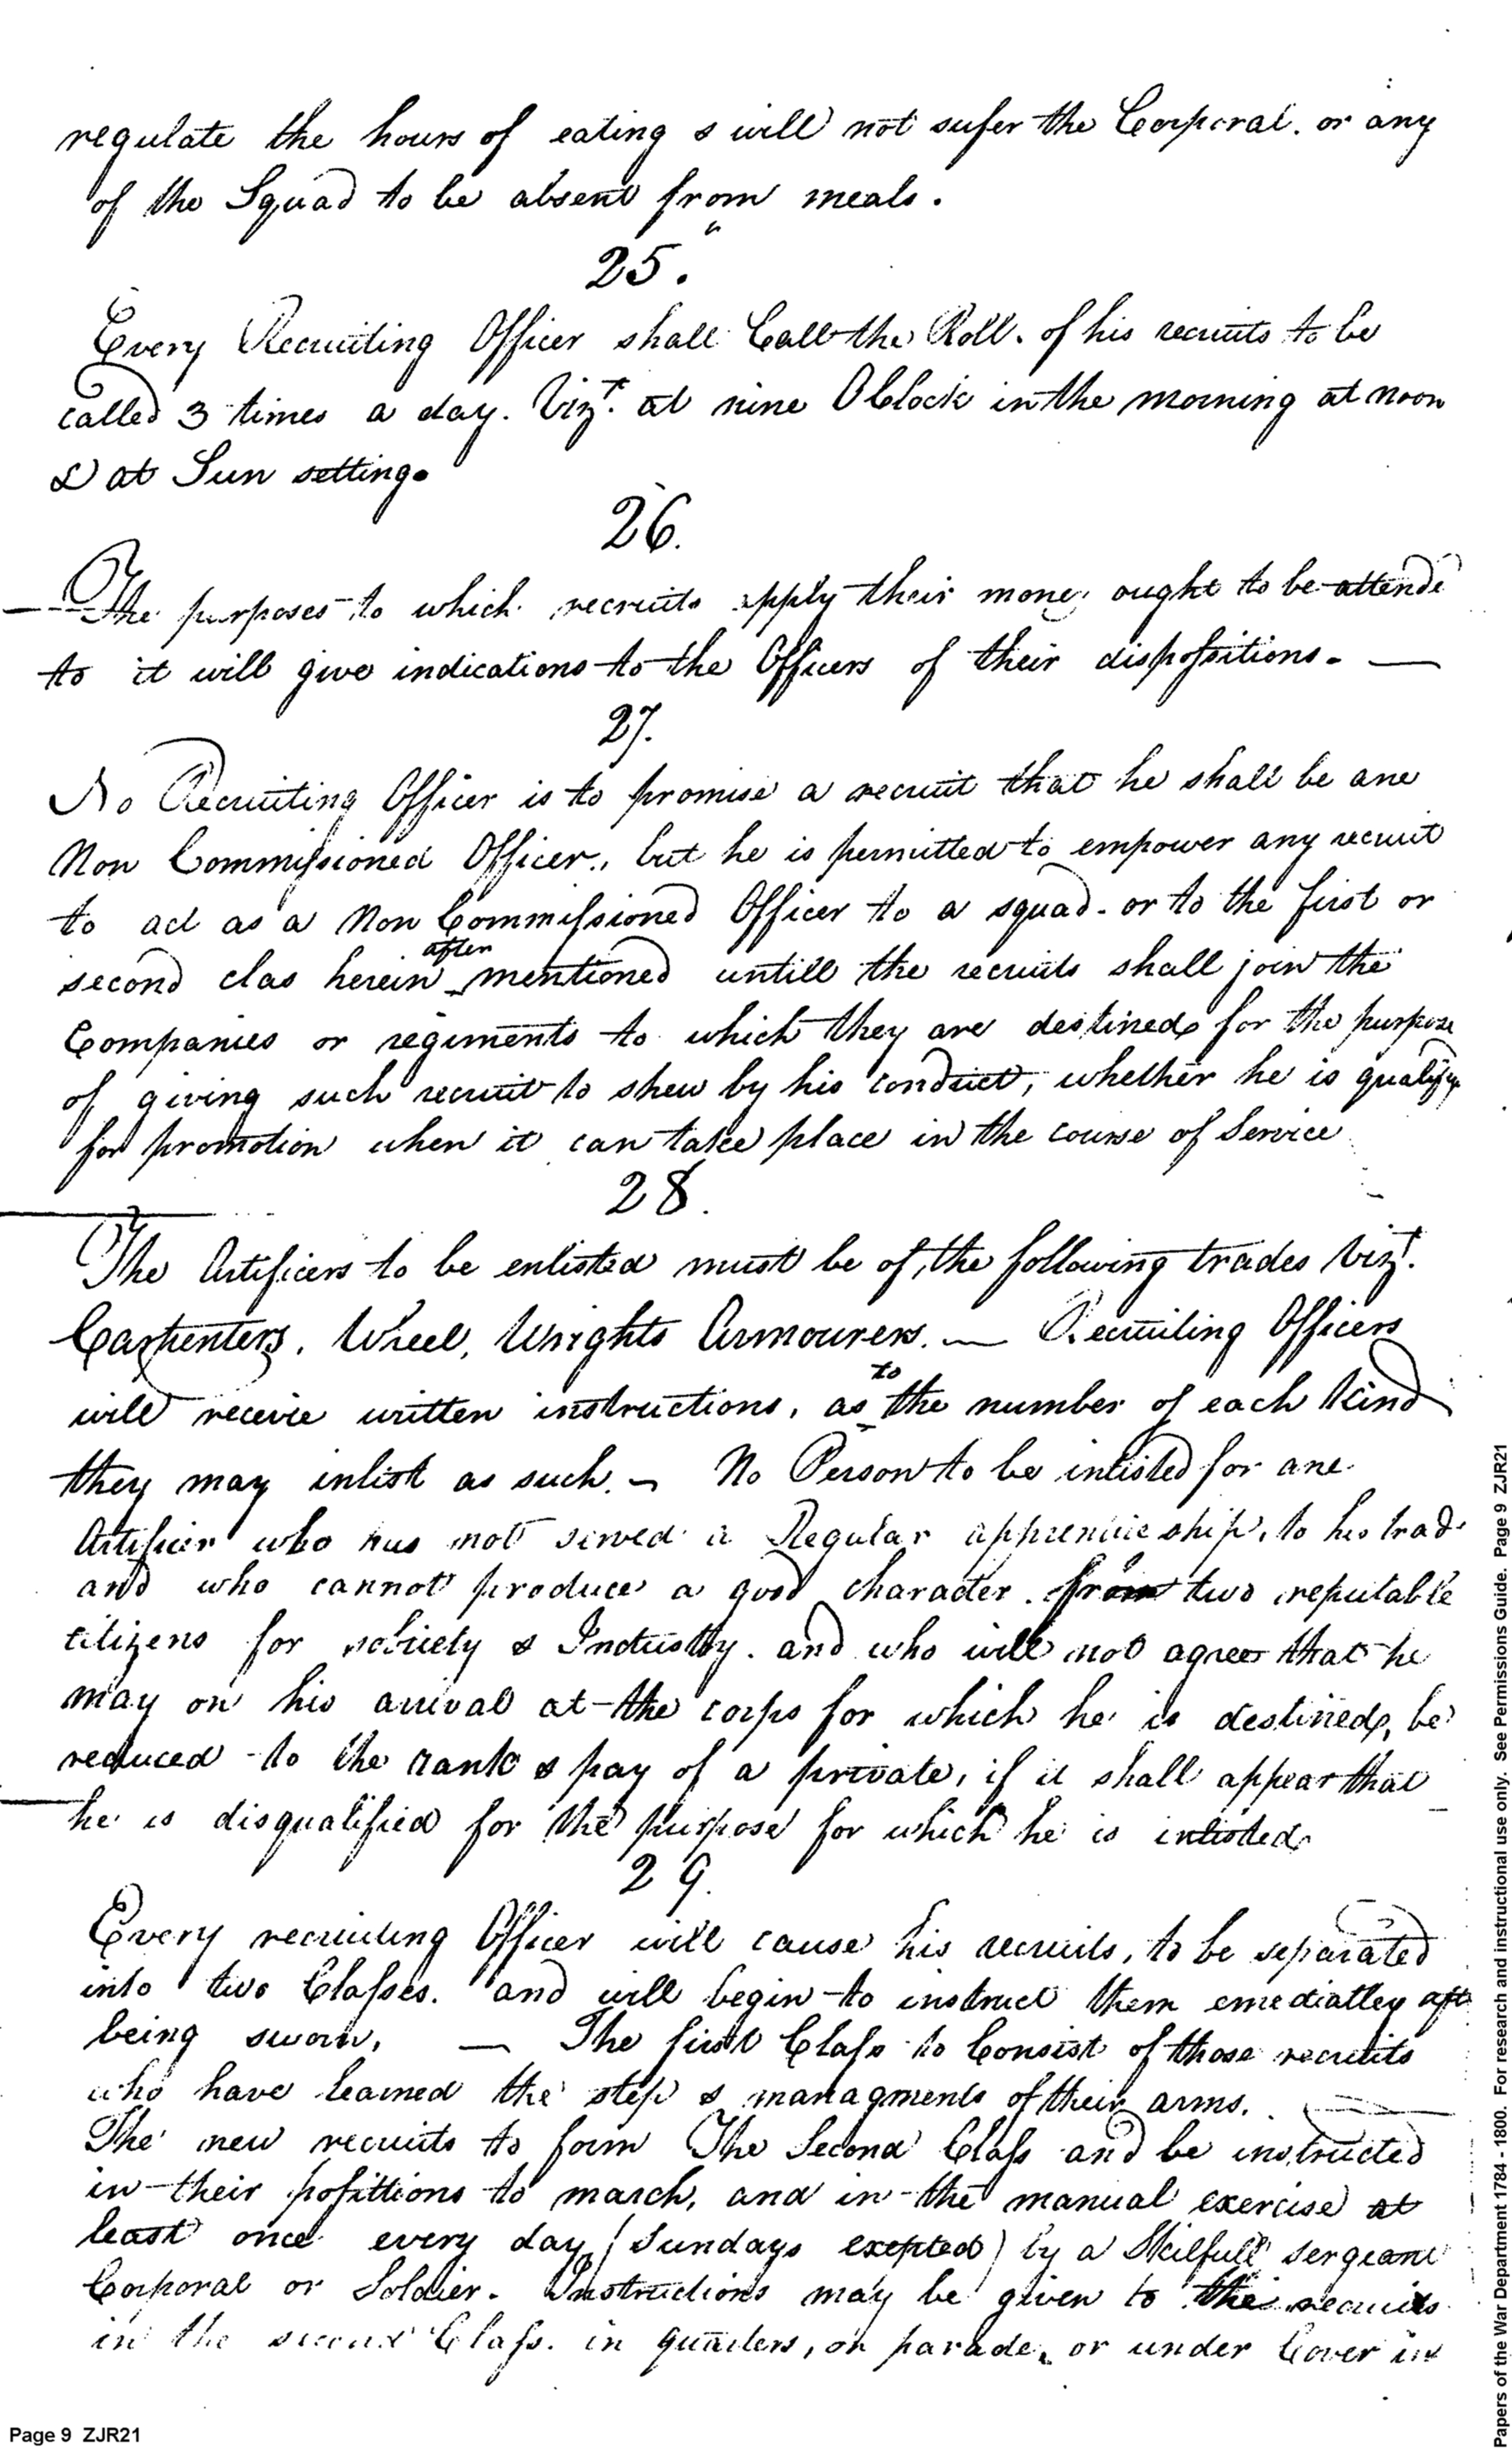 regulate the hours of eating & will not sufer the Corporal. or any
of the Squad to be absent from meals.
25.
Every Recruiting Officer shall Call the Roll. of his recruits to be
called 3 times a day. Vizt. at nine OClock in the morning at noon
& at Sun setting.
26.
The purposes to which recruits apply their money ought to be attende
to it will give indications to the Officers of their dispositions. —
27.
No Recruiting Officer is to promise a recruit that he shall be ane
Non Commissioned Officer., but he is permitted to empower any recruit
to act as a Non Commissioned Officer to a squad. or to the first or
second clas herein after mentioned untill the recruits shall join the
Companies or regiments to which they are destined for the purpose
of giving such recruit to shew by his conduct, whether he is qualify
for promotion when it can take place in the course of Service
28.
The Artificers to be enlisted must be of, the following trades Vizt.
Carpenters, Wheel, Wrights Armourers. — Recruiting Officers
will receive written instructions, as to the number of each kind
they may inlist as such. — No Person to be inlisted for ane
Artificer who has not served a Regular apprenticeship, to his trad
and who cannot produce a good character. from two reputable
citizens for sobriety & Industry. and who will not agree that he
may on his arrival at the corps for which he is destined, be
reduced to the rank & pay of a private, if it shall appear that
he is disqualified for the purpose for which he is inlisted
29.
Every recruiting Officer will cause his recruits, to be separated
into two Classes. and will begin to instruct them emediatley aft
being sworn, — The first Class to Consist of those recruits
who have learned the step & managments of their arms.
The new recruits to form The Second Class and be instructed
in their posittions to march, and in the manual exercise at
least once every day (Sundays exepted) by a Skilfull sergeant
Corporal or Soldier. Instructions may be given to the recruits
in the second Class. in quarters, on parade, or under Cover in
Page 9 ZJR21
Papers of the War Department 1784 - 1800. For research and instructional use only. See Permissions Guide. Page 9 ZJR21